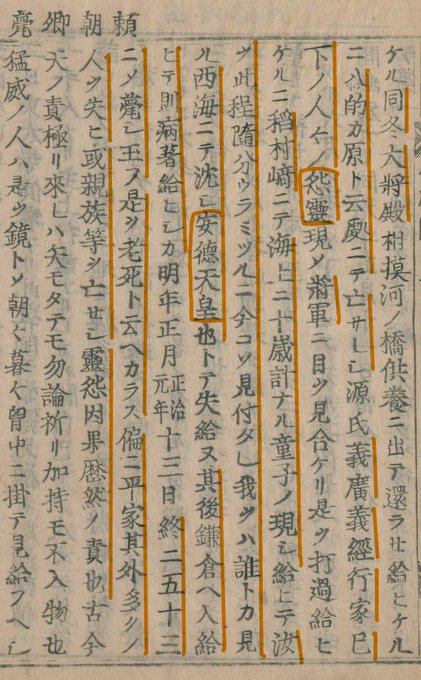 頼朝卿薨
ケル同冬大將殿相摸河ノ橋供養ニ出テ還ラせ給ヒケル
ニ八的カ原ト云處ニテ亡サレシ源氏義廣義經行家已
下ノ人々ノ怨靈現シ將軍ニ目ヲ見合ケリ是ヲ打過給ヒ
ケルニ稻村﨑ニテ海上ニ十歳計ナル童子ノ現シ給ヒテ汝
ヲ此程隨分ウラミツルニ今コソ見付タレ我ヲハ誰トカ見
ル西海ニテ沈シ安德天皇也トテ失給又其後鎌倉ヘ入給
ヒテ則病著給ヒシカ明年正月正治元年十三日終ニ五十三
ニメ薨シ玉フ是ヲ老死ト云ヘカラス偏ニ平家其外多クノ
人ヲ失ヒ或親族等ヲ亡せシ靈怨因果歴然ノ責也古今
天ノ責極リ來レハ矢モタテモ勿論祈リ加持モ不入物也
猛威ノ人ハ是ヲ鏡トメ朝ク暮ク胷中ニ掛テ見給フヘシ